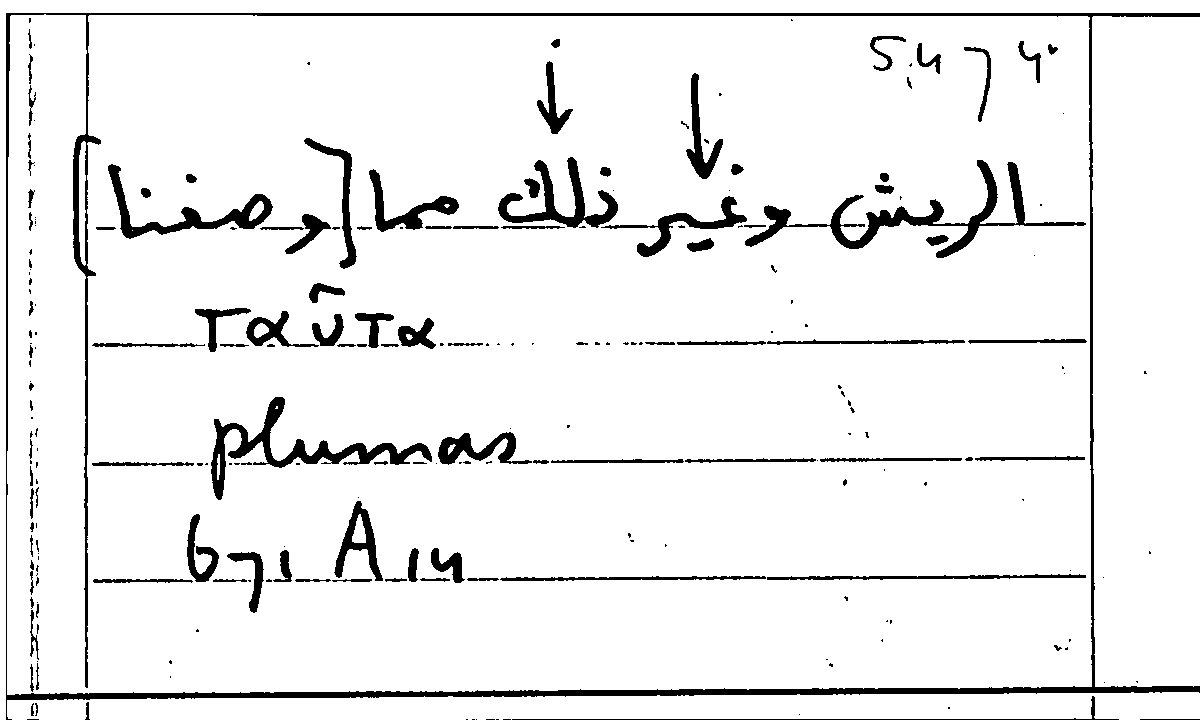 الريش وغير ذلك مما [وصفنا]
ταῦτα
plumas
671 A 14